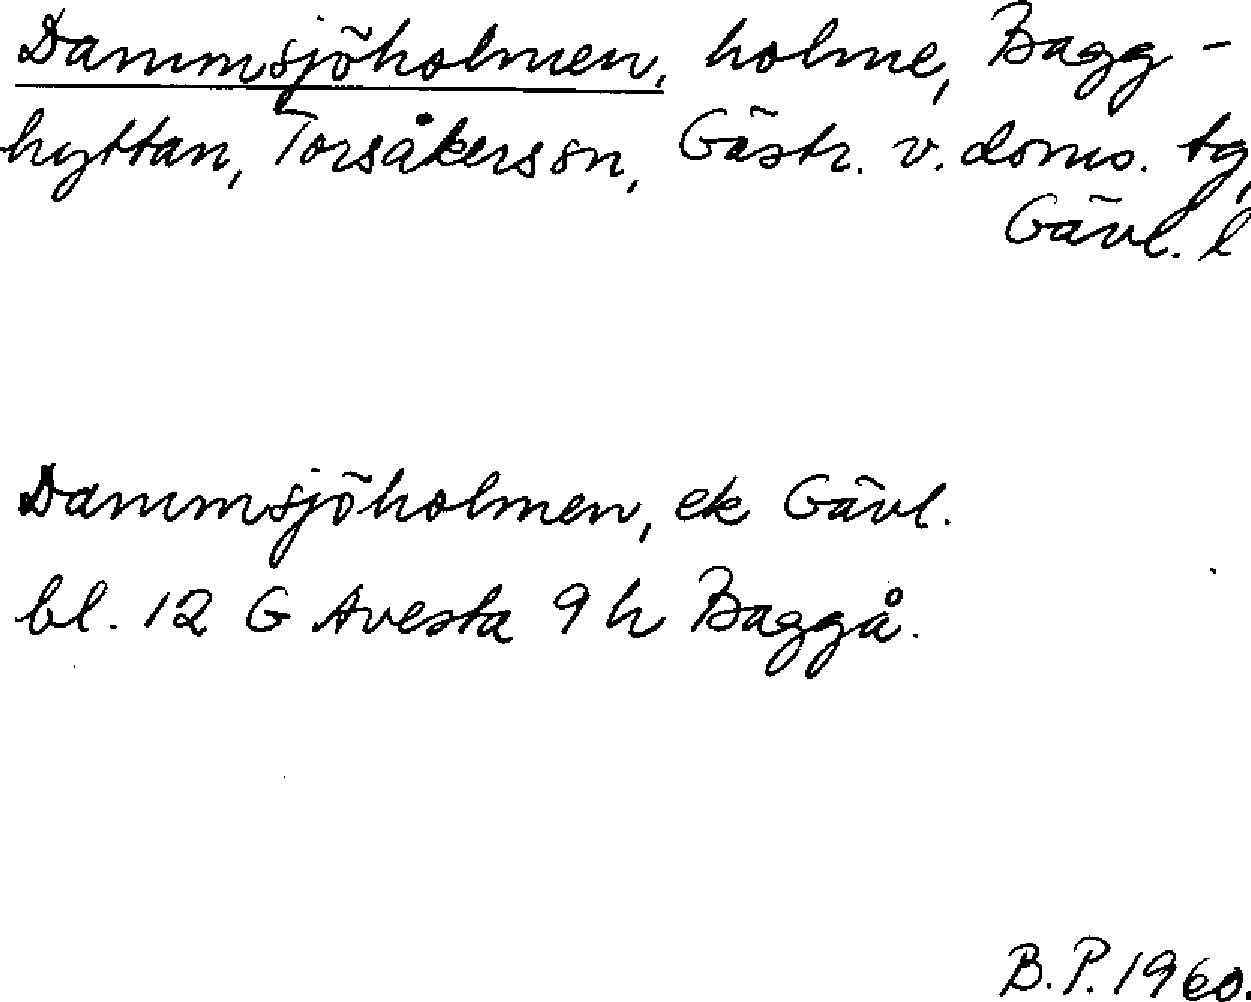 Dammsjöholmen, holme, Bagg-
hyttan, Torsåkers sn, Gästr. v. doms. tg,
Gävl. l
Dammsjöholmen, ek Gävl.
bl. 12 G Avesta 9 h Baggå.
B. P. 1960.